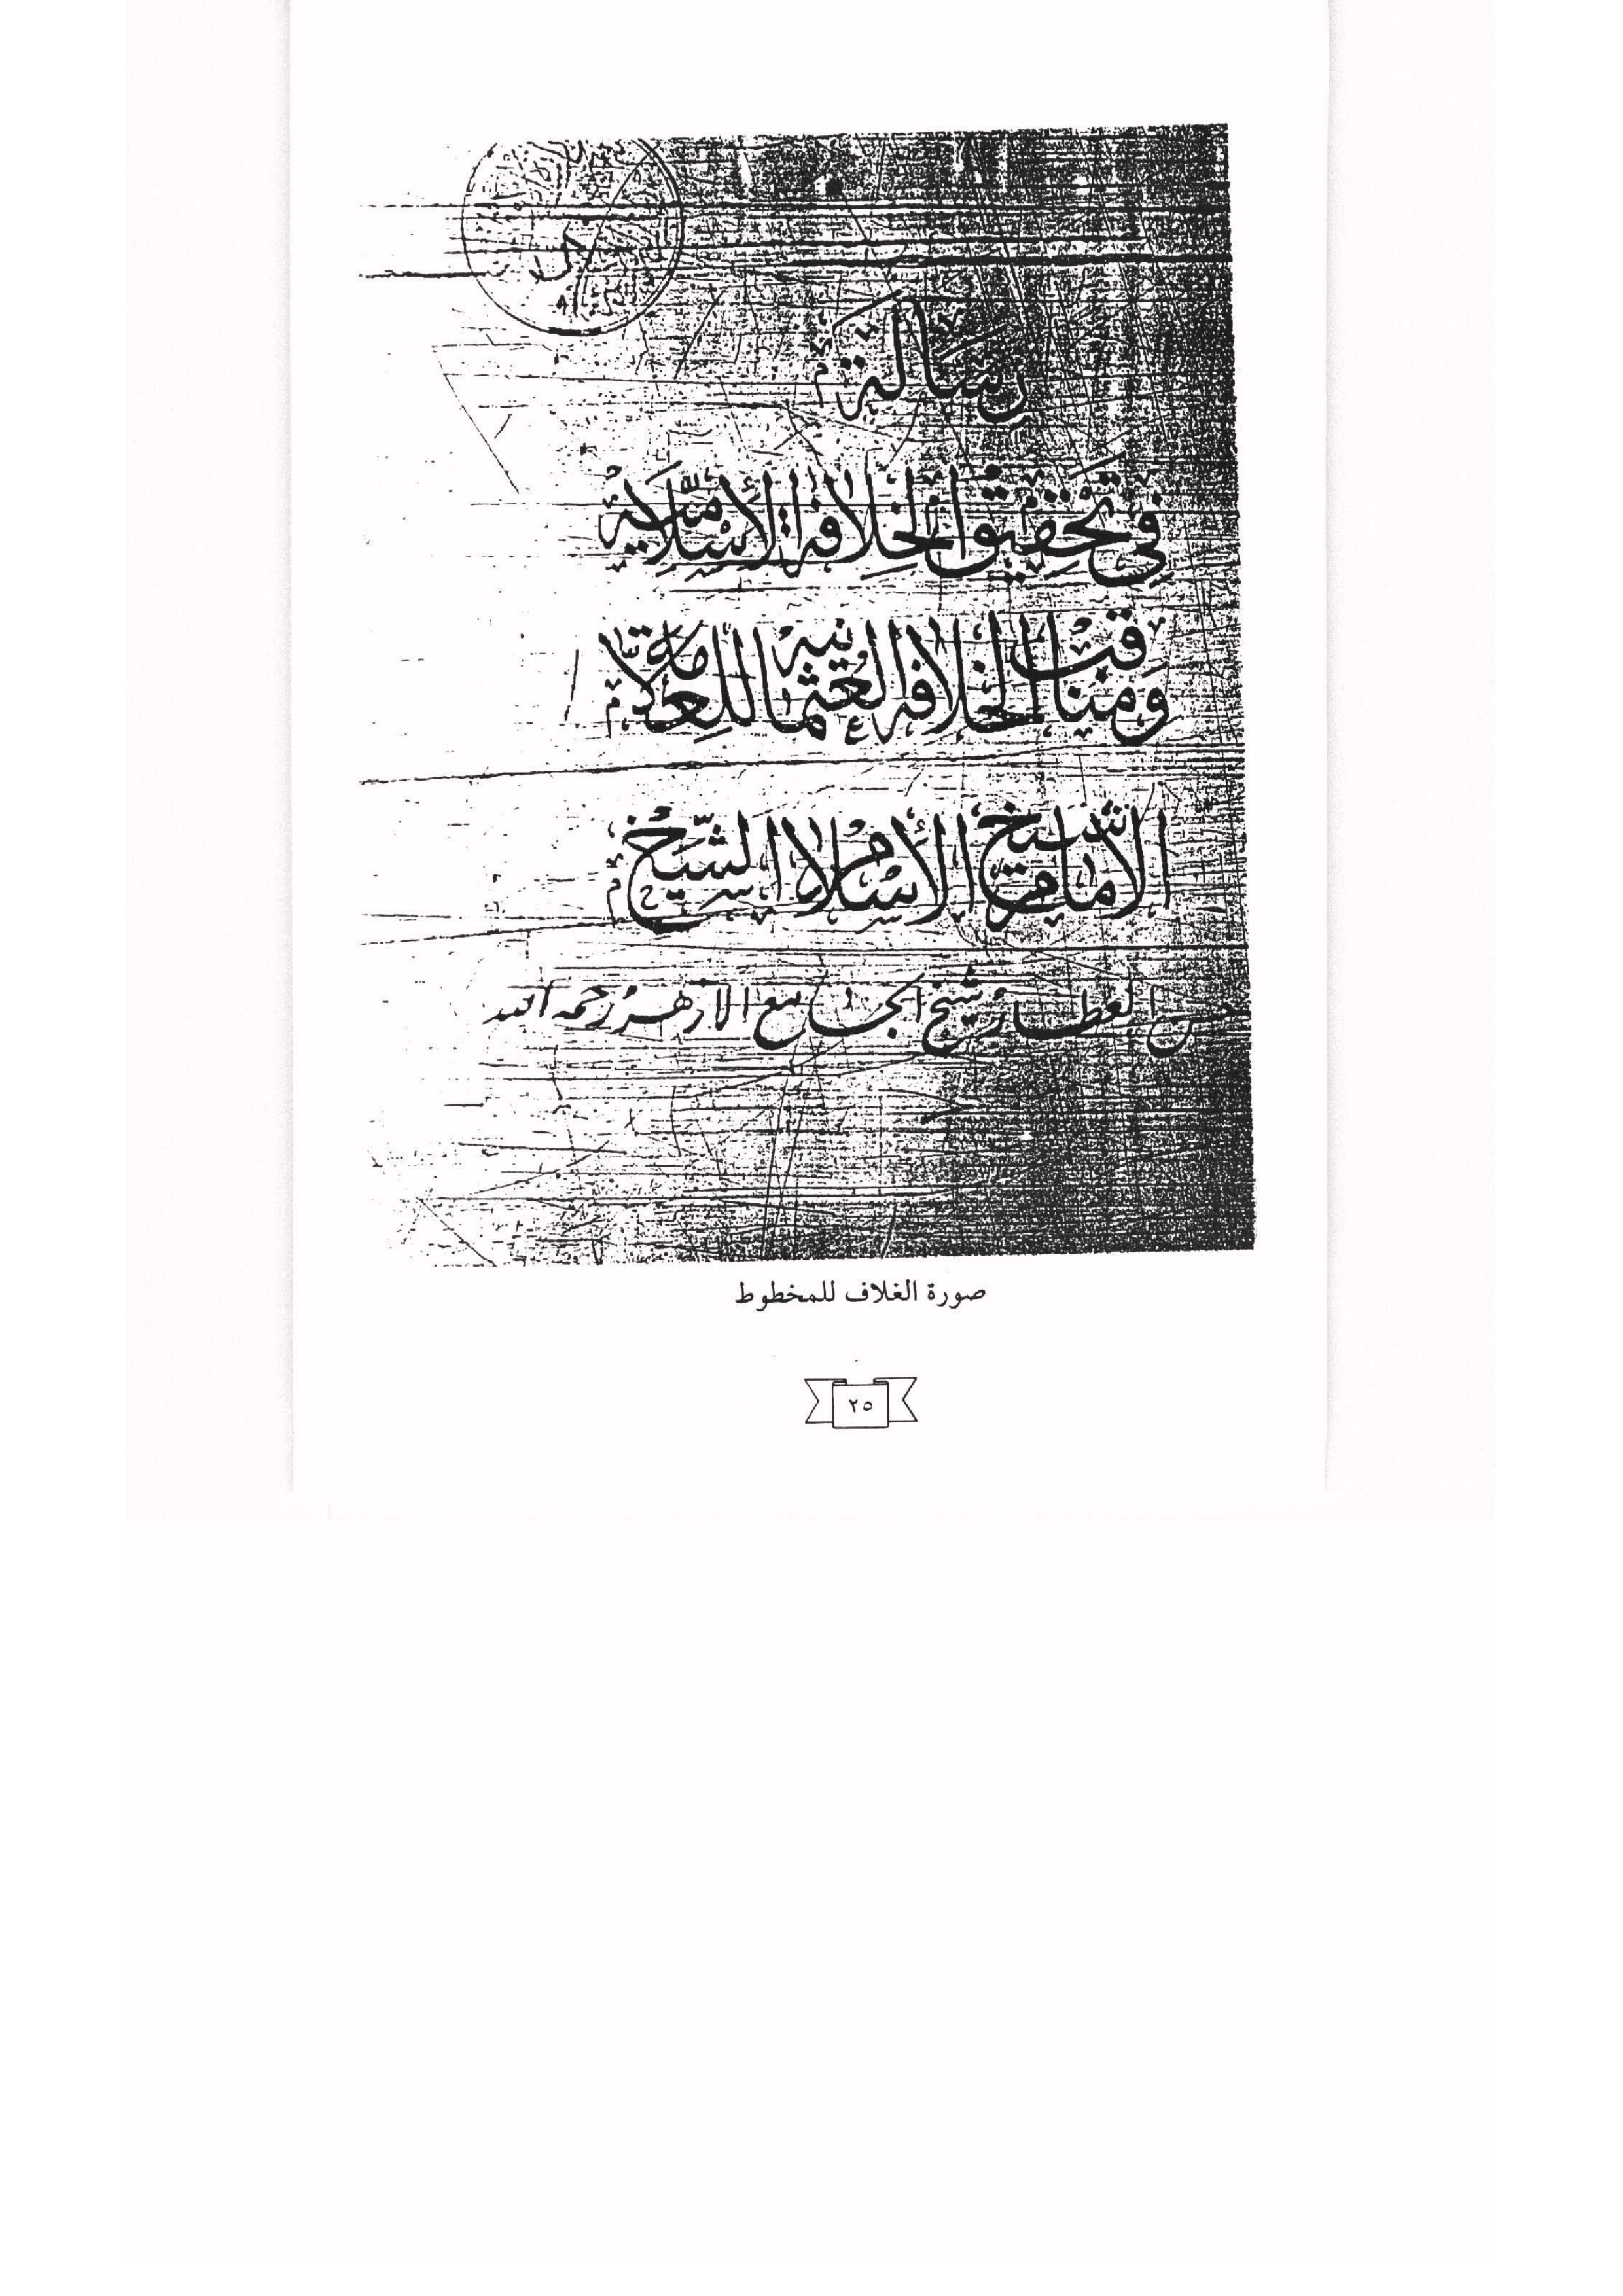 رسالة
في تحقيق الخلافة الإسلامية
ومناقب الخلافه العثمانيه للعلامة
الامام شيخ الأسلام الشيخ
حسن العطار شيخ الجامع الازهر رحمه الله
صورة الغلاف للمخطوط
٢٥